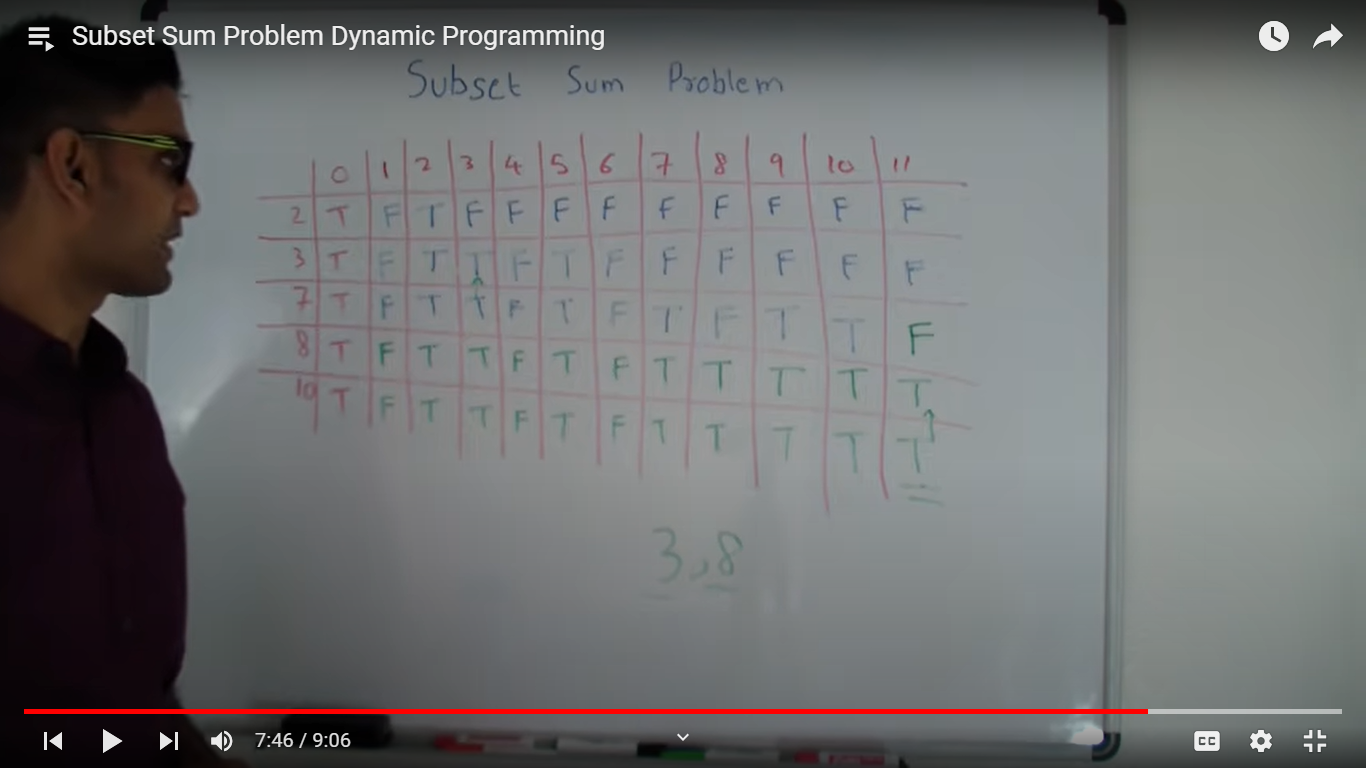 Subset Sum Problem Dynamic Programming
Subset Sum Problem
0 1 2 3 4 5 6 7 8 9 10 11
2 T F T F F F F F F F F F
3 T F T T F T F F F F F F
7 T F T T F T F T F T T F
8 T F T T F T F T T T T T
10 T F T T F T F T T T T T
3,8
7:46 / 9:06
CC